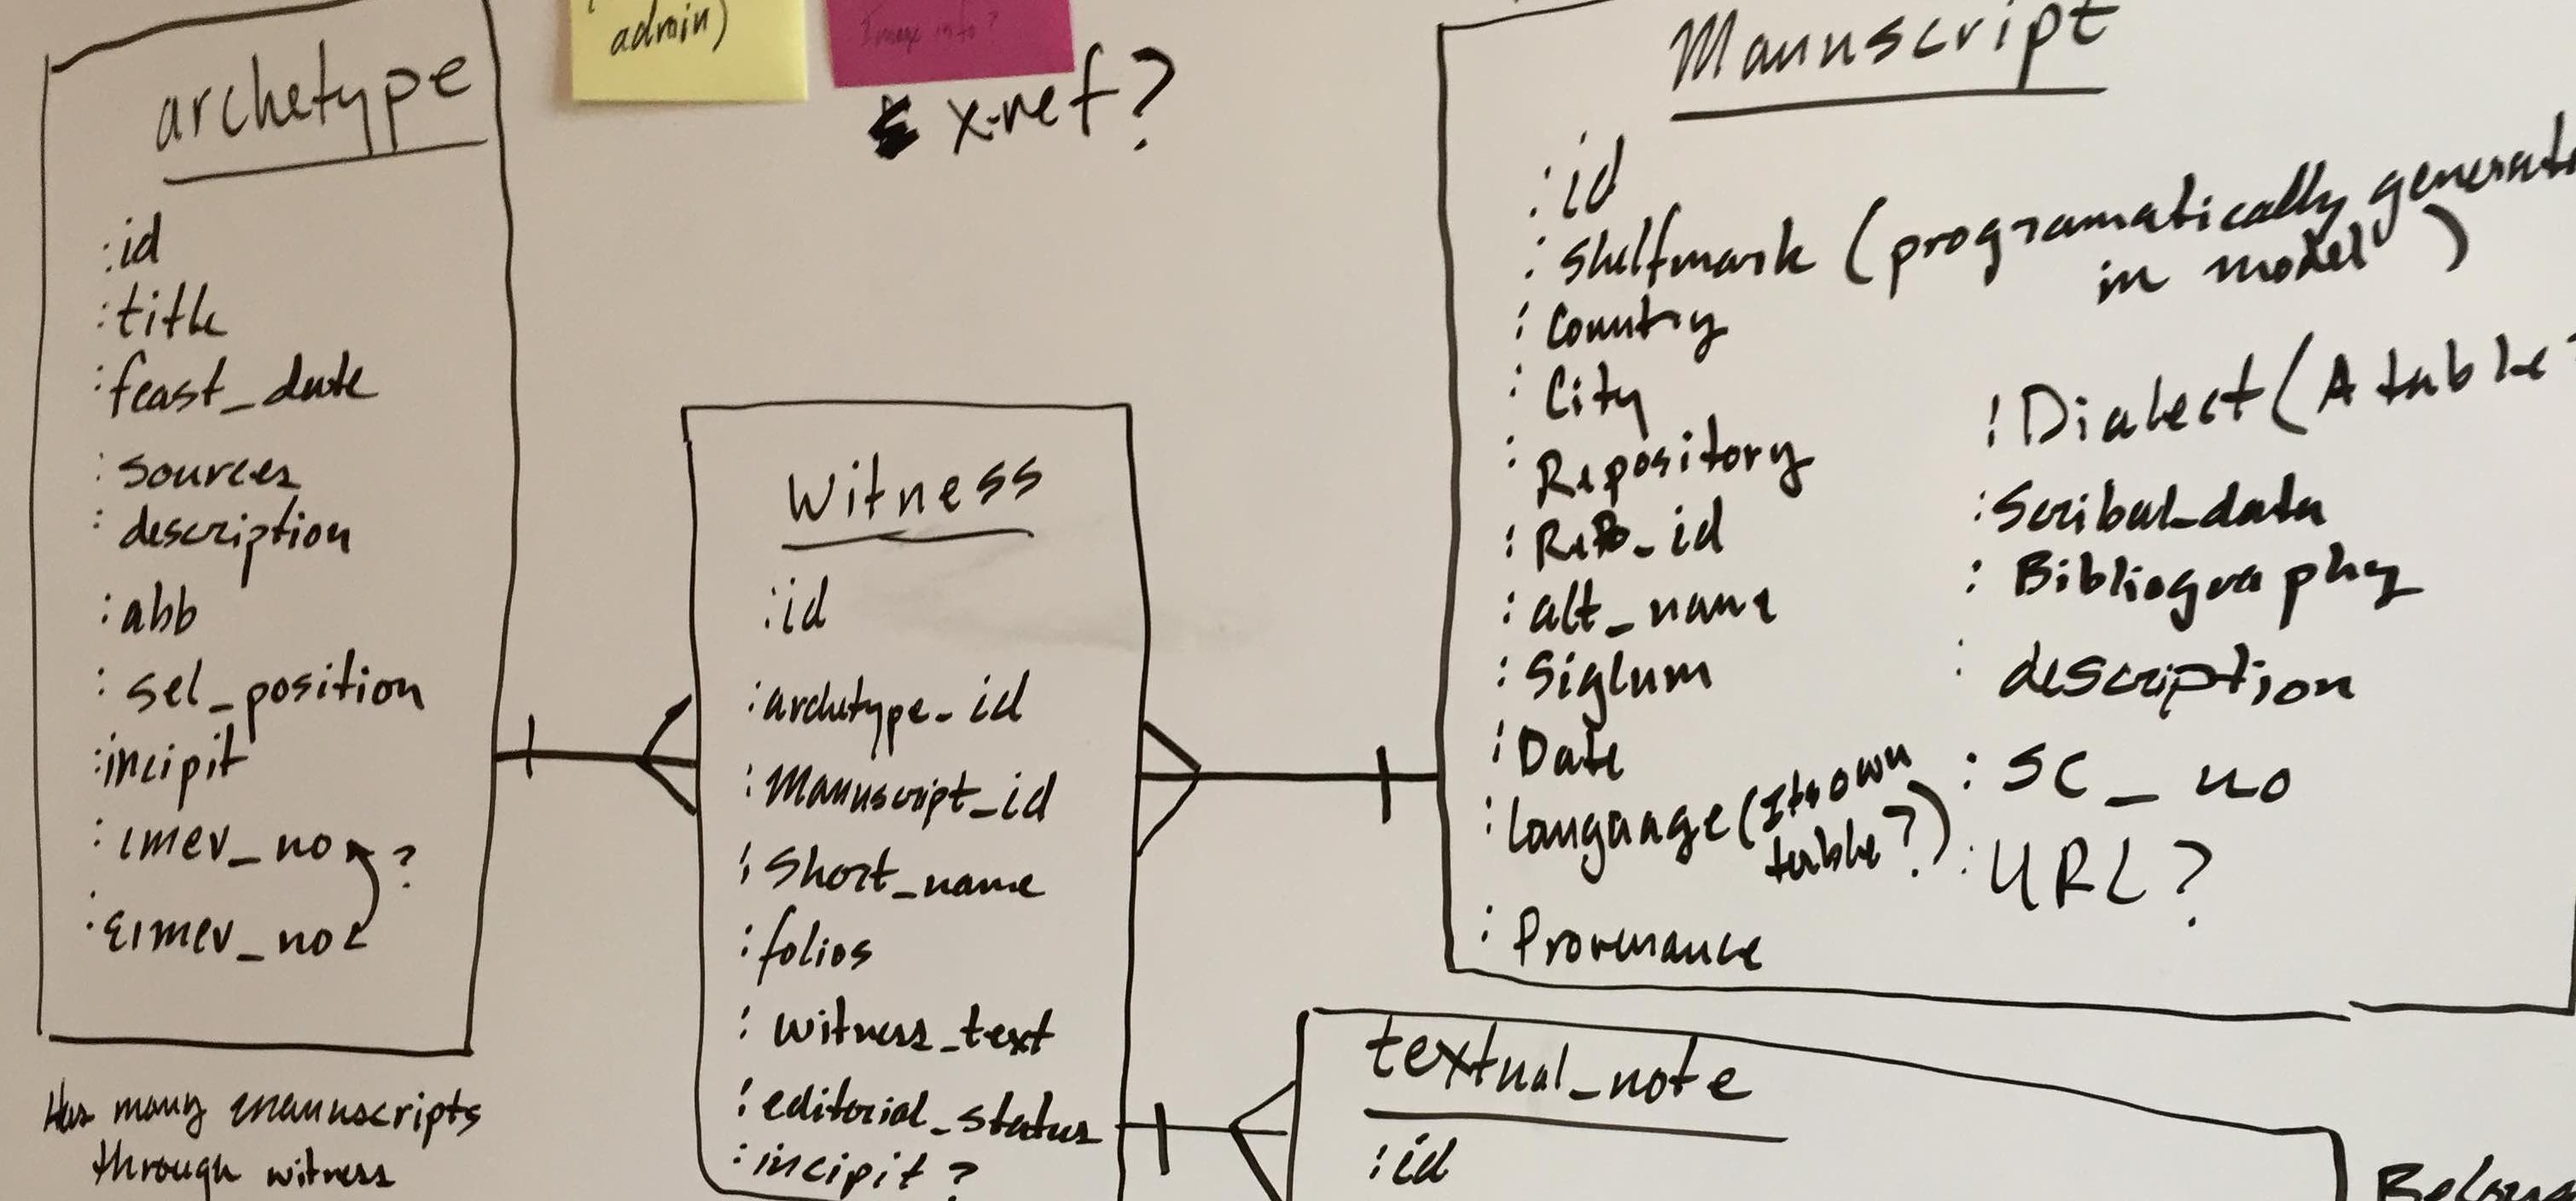 admin)
Image info?
x-ref?
archetype
:id
:title
:feast_date
:sources
:description
:abb
:sel_position
:incipit
:imev_no
?
:EIMEV_no
Has many manuscripts
through witness
Witness
:id
:archetype_id
:Manuscript_id
:Short_name
:folios
:witness_text
:editorial_status
:incipit?
Manuscript
:id
:Shelfmark (programatically generat
in model)
:Country
:City
:Repository
:Repo_id
:alt_name
:Siglum
:Date
:Language (Its own
table?)
:Provenance
:Dialect (A table
:Scribal_data
:Bibliography
:description
:SC_no
:URL?
textual_note
:id
Belon